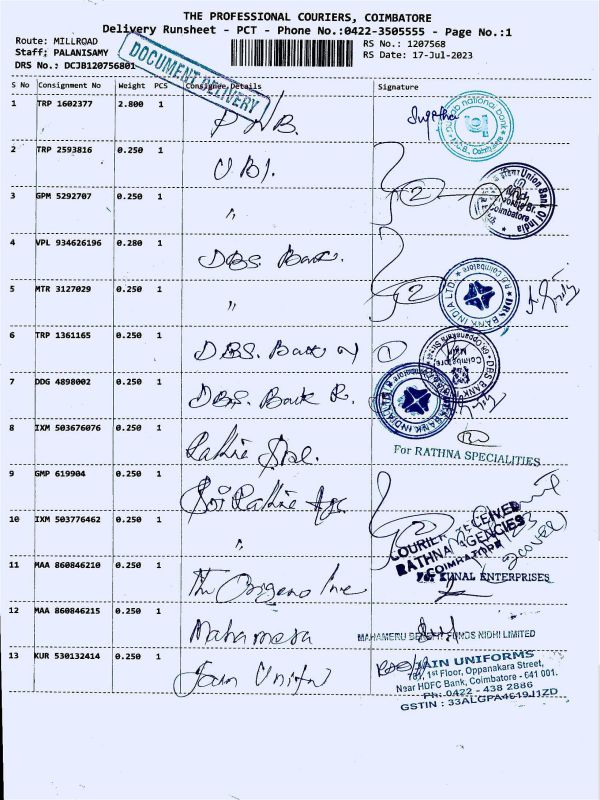 THE PROFESSIONAL COURIERS, COIMBATORE
Delivery Runsheet - PCT - Phone No.:0422-3505555 - Page No.:1
Route: MILLROAD
Staff; PALANISAMY
DRS No.: DCJB120756801
RS No.: 1207568
RS Date: 17-Jul-2023
DOCUMENT DELIVERY
S No Consignment No Weight PCS Consignee Details Signature
1 TRP 1602377 2.800 1 PNB.
2 TRP 2593816 0.250 1 UBI.
3 GPM 5292707 0.250 1 "
4 VPL 934626196 0.280 1 DBS. Bank.
5 MTR 3127029 0.250 1 "
6 TRP 1361165 0.250 1 DBS. Bank
7 DDG 4898002 0.250 1 DBS. Bank R.
8 IXM 503676076 0.250 1
9 GMP 619904 0.250 1
10 IXM 503776462 0.250 1 "
11 MAA 860846210 0.250 1
12 MAA 860846215 0.250 1
13 KUR 530132414 0.250 1 Jain
national bank
Coimbatore
2
Union Bank Of India
Coimbatore
2
DBS BANK INDIA LTD
R.S. Coimbatore
1
DBS BANK
Coimbatore
BANK INDIA LTD
For RATHNA SPECIALITIES
2
COURIER RECEIVED
RATHNA AGENCIES
COIMBATORE
For KUNAL ENTERPRISES
MAHAMERU NIDHI LIMITED
JAIN UNIFORMS
1st Floor, Oppanakara Street,
Near HDFC Bank, Coimbatore - 641 001.
Ph: 0422 - 438 2886
GSTIN : 33ALGPA4619J1ZD